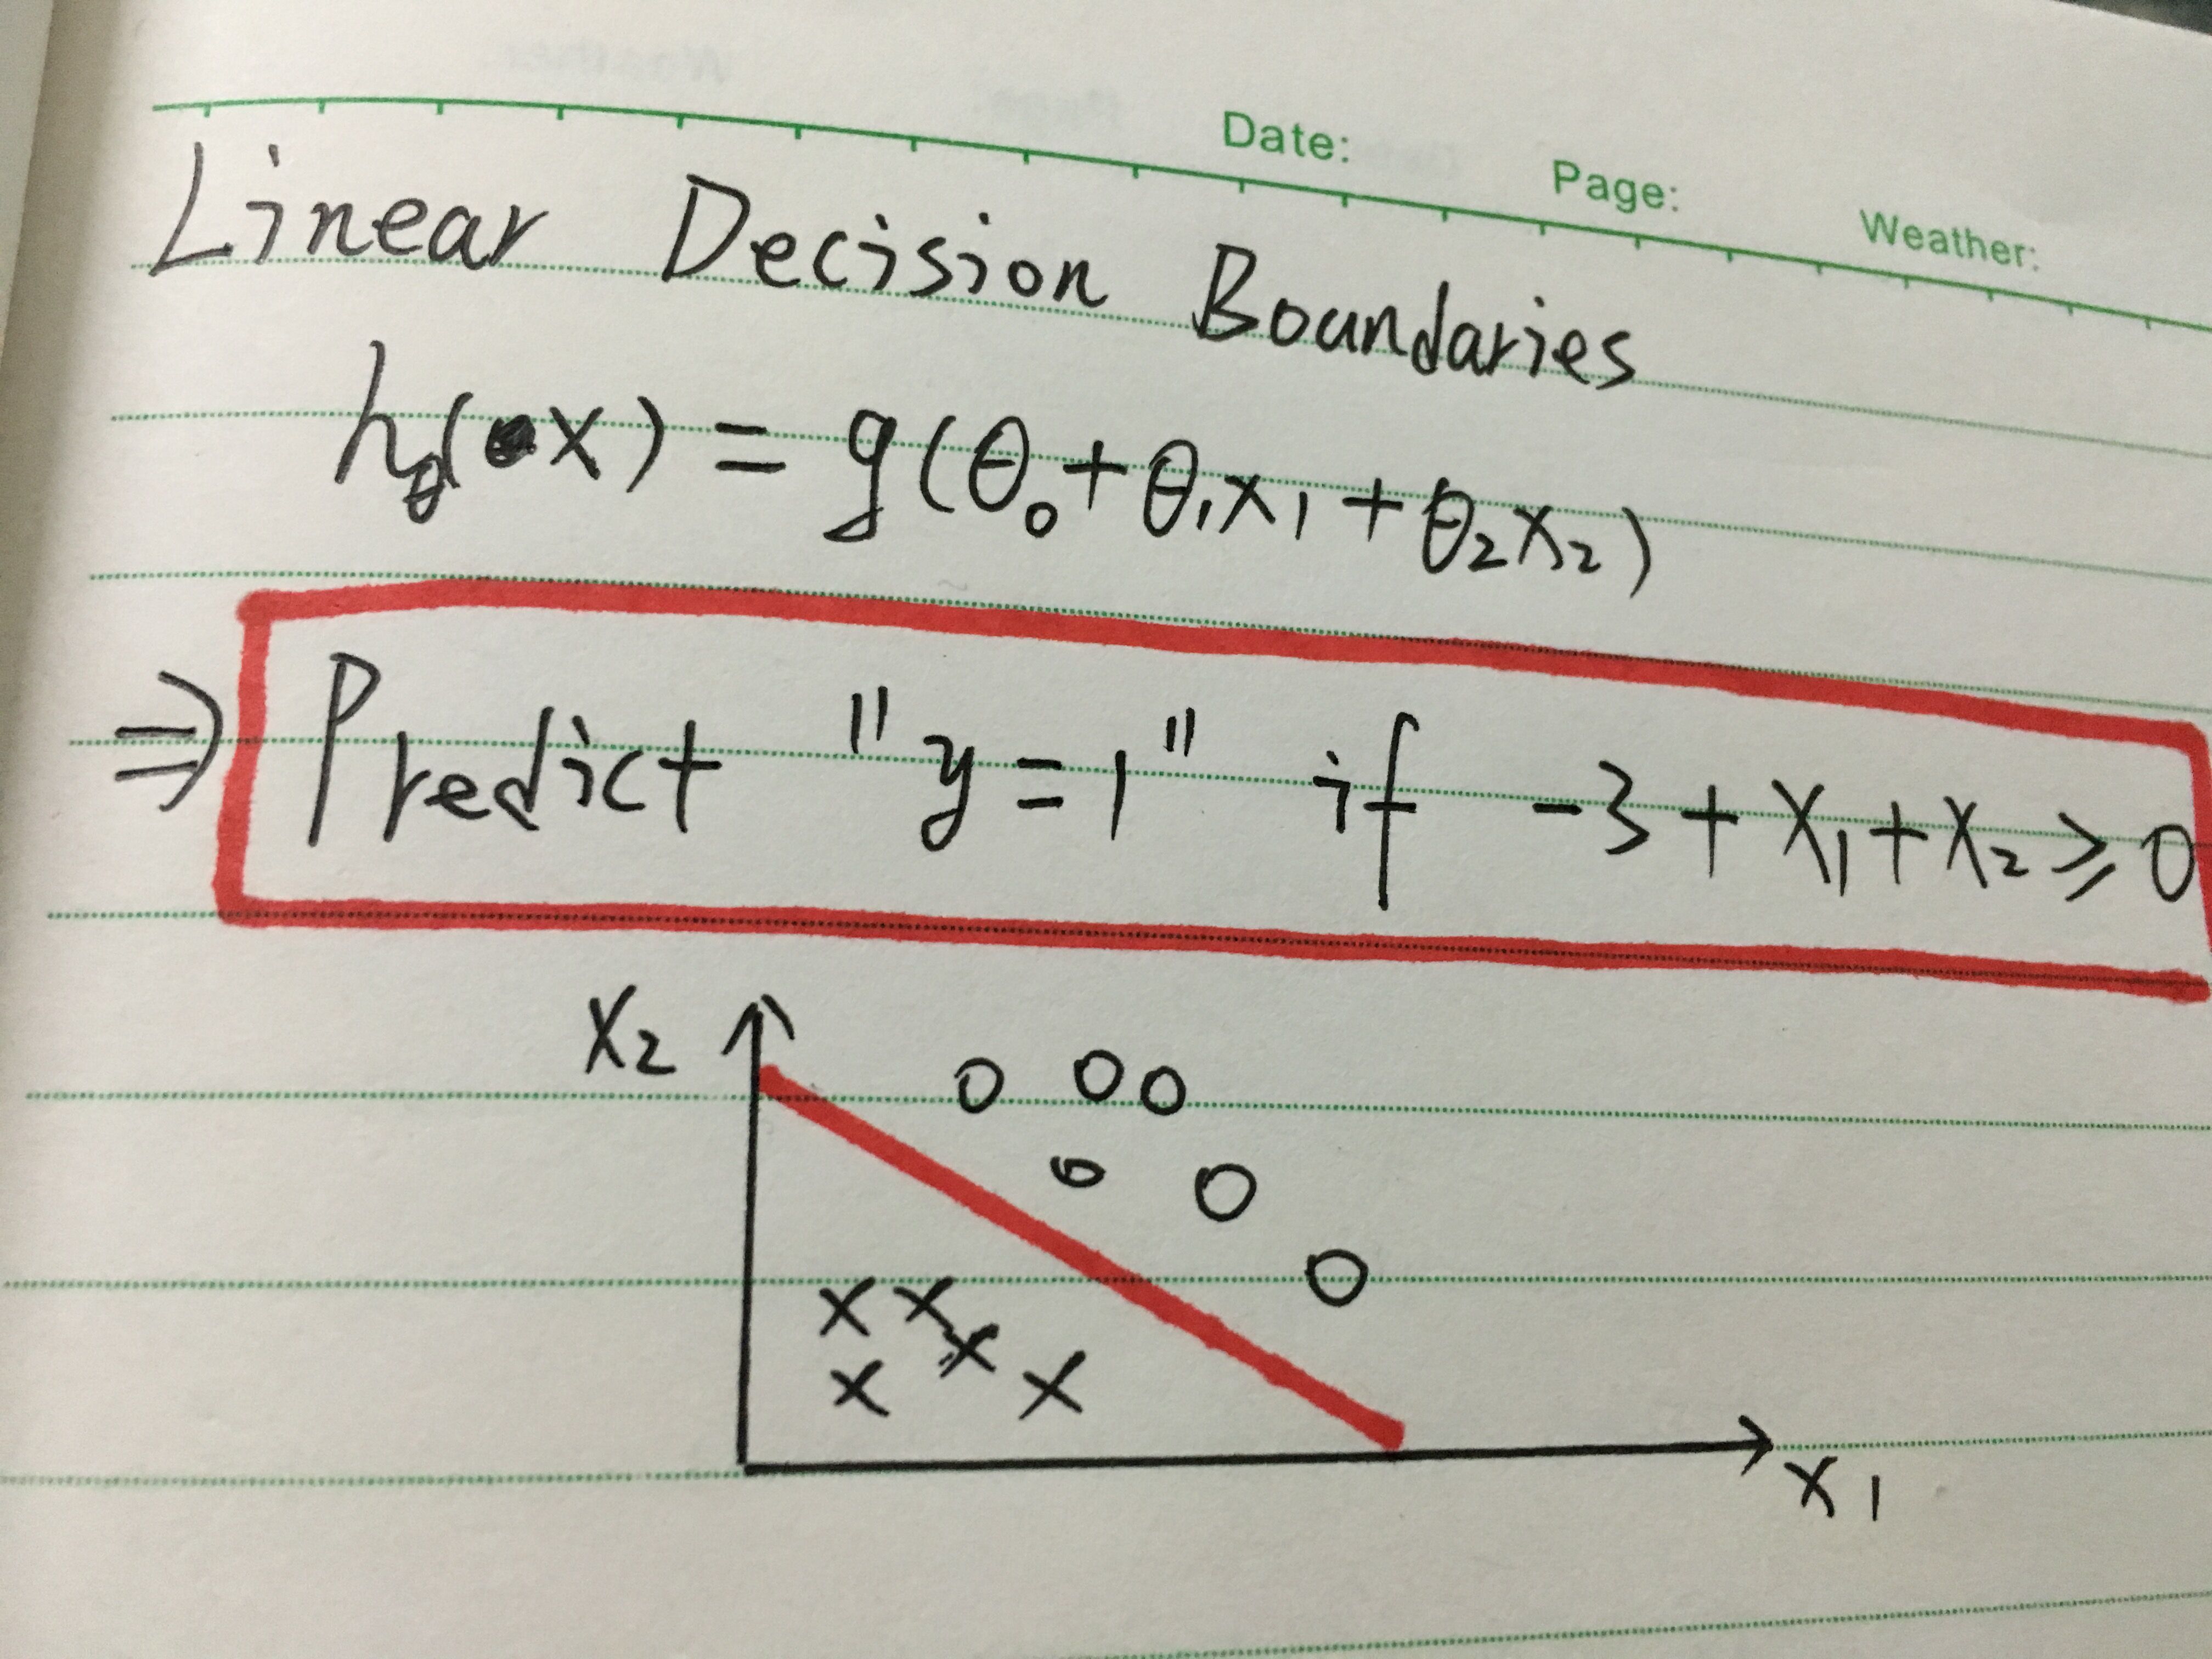 Date: Page: Weather:
Linear Decision Boundaries
hθ(x) = g(θ₀+θ₁x₁+θ₂x₂)
⇒ Predict "y=1" if -3+x₁+x₂≥0
x₂
x₁